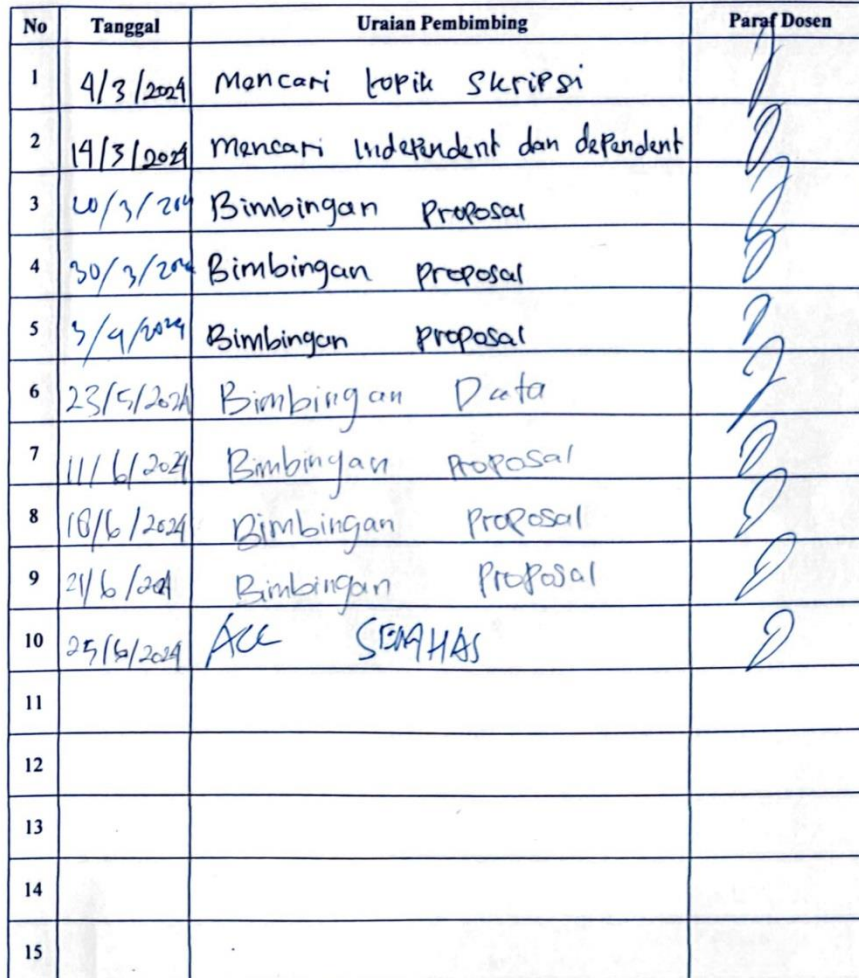 No Tanggal Uraian Pembimbing Paraf Dosen
1 4/3/2024 Mencari topik Skripsi
2 14/3/2024 Mencari Independent dan dependent
3 20/3/2024 Bimbingan Proposal
4 30/3/2024 Bimbingan proposal
5 3/4/2024 Bimbingan proposal
6 23/5/2024 Bimbingan Data
7 11/6/2024 Bimbingan Proposal
8 18/6/2024 Bimbingan Proposal
9 21/6/2024 Bimbingan Proposal
10 25/6/2024 ACC SEMHAS
11
12
13
14
15